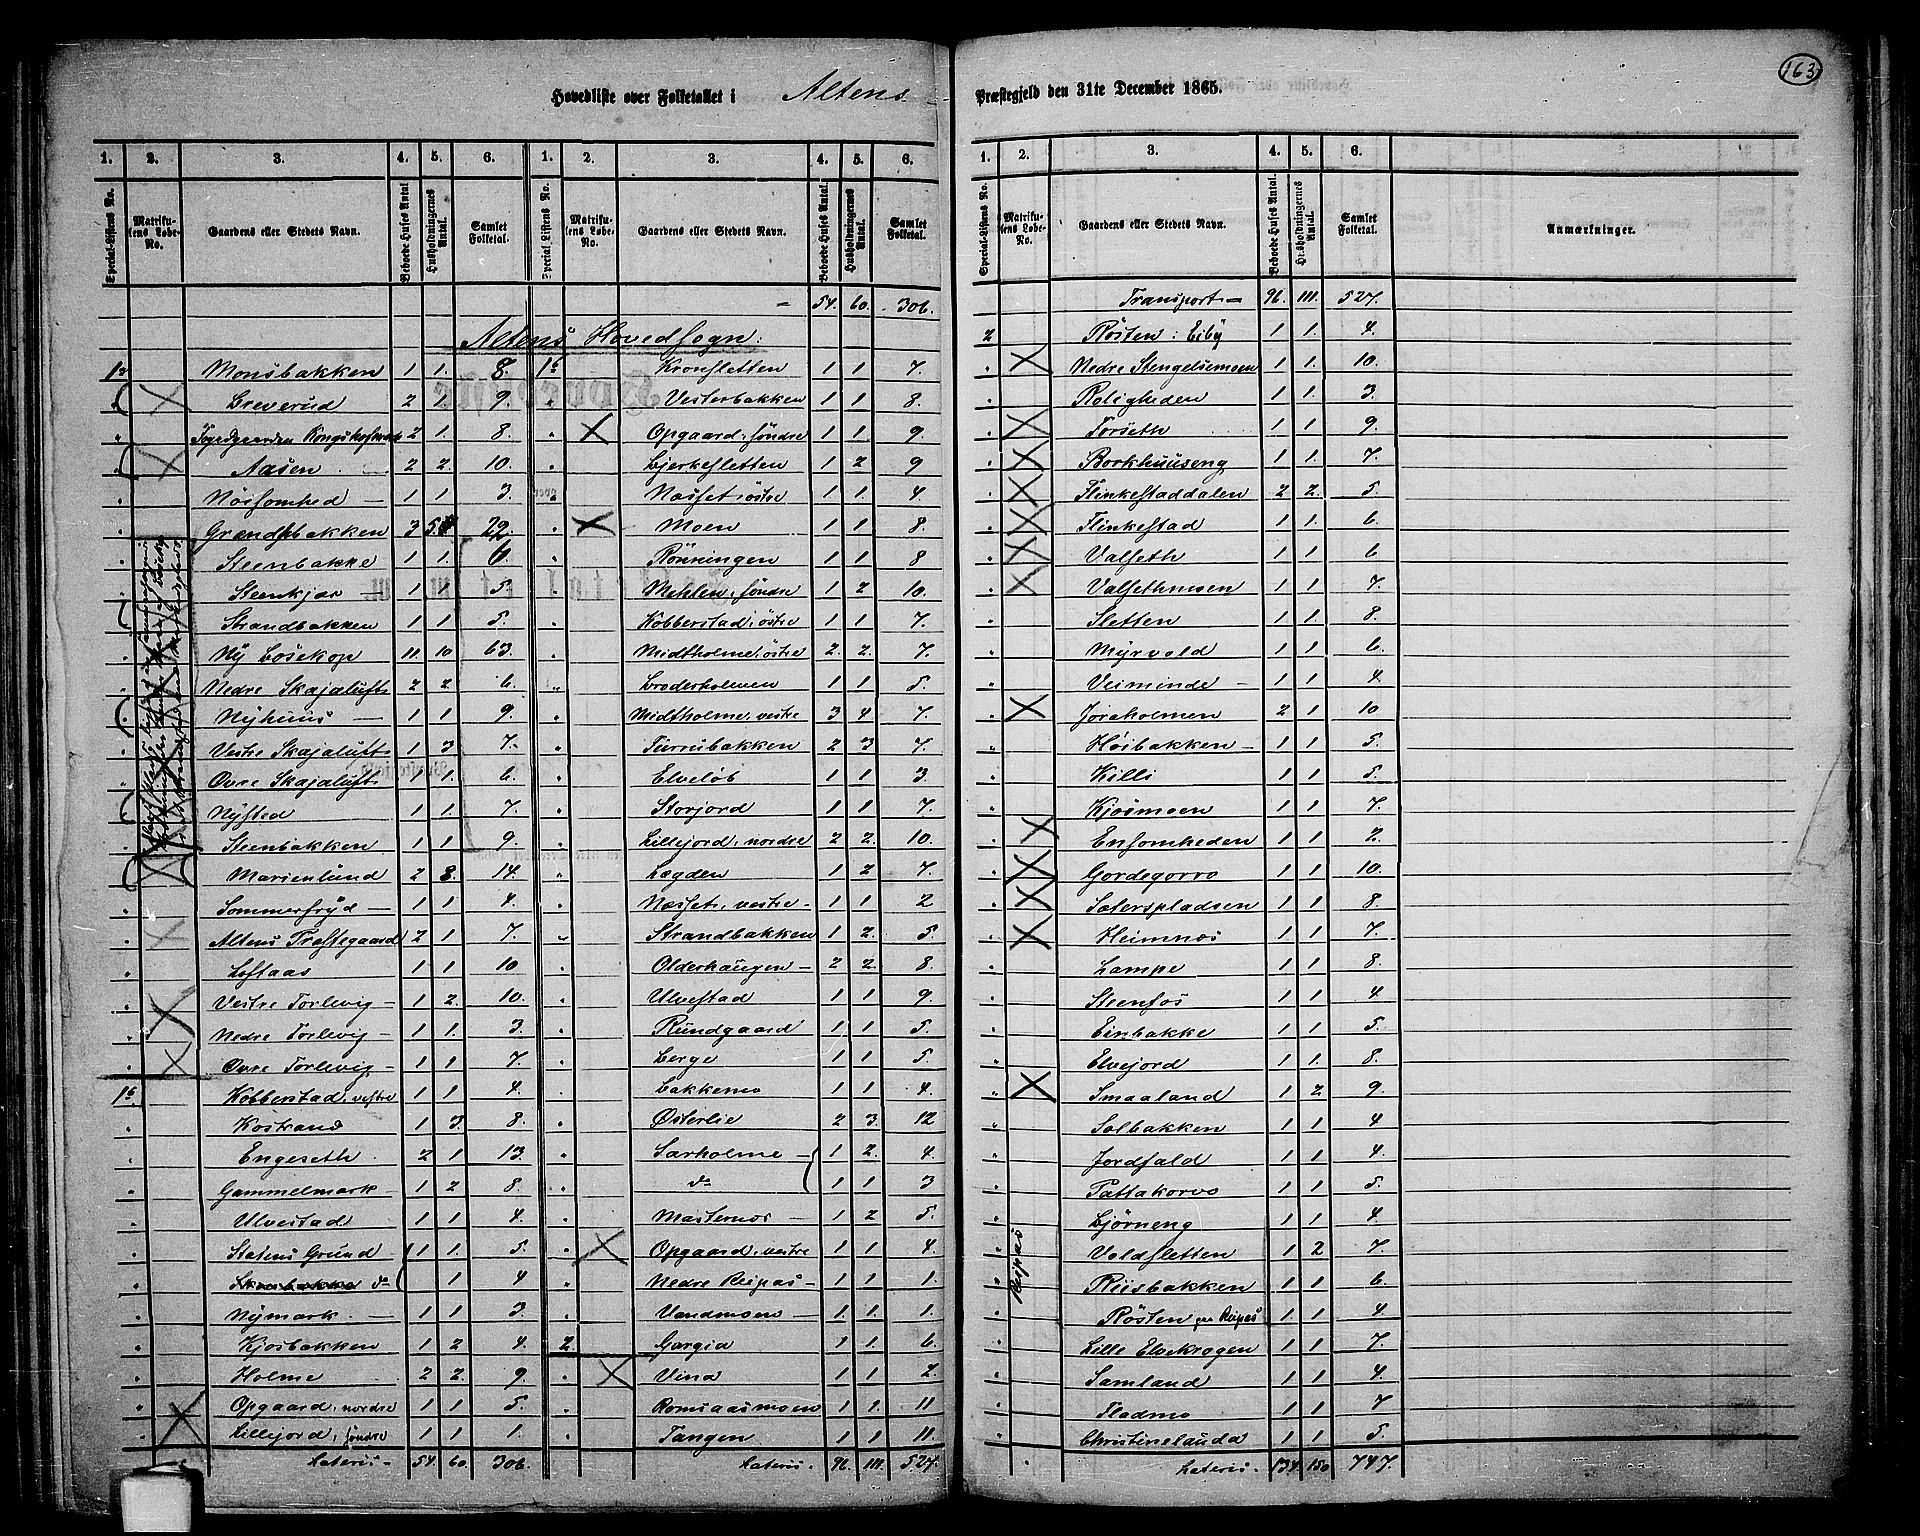 163
Hovedliste over Folketallet i Altens
Præstegjeld den 31te December 1865.
1. 2. 3. 4. 5. 6. 1. 2. 3. 4. 5. 6.
Special-Listens No. Matrikulens Løbe-No. Gaardens eller Stedets Navn. Beboede Huses Antal. Husholdningernes Antal. Samlet Folketal. Special-Listens No. Matrikulens Løbe-No. Gaardens eller Stedets Navn. Beboede Huses Antal. Husholdningernes Antal. Samlet Folketal.
Altens Hovedsogn:
Monsbakken 1 1. 8.
Breverud 2 1. 9.
Fogedgaarden 2 1. 8.
Aasen 2 2. 10.
Nøisomhed 1 1 3.
3 22.
Steenbakke 1 1. 6.
Steenkjær 1 1 5.
Strandbakken 1 1 5.
Ny Bosekop 11. 10 63.
Nedre Skajaluft 2 2. 6.
Nyhuus 1 1 9.
Vestre Skajaluft 1 3 7.
Øvre Skajaluft 1 1. 6.
Nysted 1 1. 7.
Steenbakken 1 1 9.
Marienlund 2 3. 14.
Sommerfryd 1 1 4.
Altens Præstegaard 2 1 7.
Loftaas 1 1 10
Vestre Torlevig 1 2. 10.
Nedre Torlevig 1 1. 3.
Øvre Torlevig 1 1 7.
Kobberstad, vestre 1 1 4.
Kostrand 1 3. 8.
Engeseth 2 1 13.
Gammelmark 1 2 8.
Ulvestad 1 1 4.
Statens Grund 1 1. 5.
do 1 4
Nymark 1 1 3.
Kjosbakken 1 2 4.
Holme 2 2. 9.
Opgaard, nordre 1 1 5.
Lillejord, söndre 1 1 1.
Lateris 54. 60. 306.
54. 60. 306.
Kronsletten 1 1 7.
Vesterbakken 1 1 8.
Opgaard, söndre 1 1 9.
Bjerkesletten 1 2 9
Næsset, östre 1 1. 4
Moen 1 1 8.
Rönningen 1 1 8
Mehlen, söndre 1 2 10.
Kobberstad, östre 1 1 7.
Midtholme, östre 2. 2. 7.
Broderholmen 1 1 5.
Midtholme, vestre 3 4 7.
Furrubakken 2 3 7.
Elvelöb 1 1 3.
Storjord 1 1 7.
Lillejord, nordre 2 2. 10.
Lagden 1 2 7.
Næsset, vestre 1 1. 2
Strandbakken 1 2. 5.
Olderhaugen 2 2. 8.
Ulvestad 1 1 9.
Rundgaard 1 1 5.
Berge 1 1 5.
Bakkemo 1 1. 4.
Østerlie 2 3. 12
Sarholme 1 2. 4.
do 1 1 3
Masternes 1 2 5.
Opgaard, vestre 1 1. 4.
Nedre Reipas 1 1. 1.
Vandmoen 1 1. 1.
2. Gargia 1 1. 6.
Vina 1 1.
Romsaasmoen 1 1. 11
Tangen 1 1 11.
Lateris 96. 111. 527.
1. 2. 3. 4. 5. 6.
Special-Listens No. Matrikulens Løbe-No. Gaardens eller Stedets Navn. Beboede Huses Antal. Husholdningernes Antal. Samlet Folketal. Anmærkninger.
Transport 96. 111. 527.
2 Røsten: Eiby 1 1. 4.
Nedre Stengelsemoen 1 1. 10.
Roligheden 1 1. 3.
Forseth 1 1. 9.
Borkhuuseng 1 1. 7.
Flinkestaddalen 2 2. 5.
Flinkestad 1 1. 6.
Valseth 1 1. 6
Valsethmoen 1 1. 7.
Sletten 1 1. 8.
Myrvold 1 1. 6
Veiminde 1 1. 4
Joraholmen 2 1 10
Høibakken 1 1. 5.
Killi 1 1. 5.
Kjosmoen 1 1. 7.
Ensomheden 1 1. 2.
Gordegorro 1 1. 10.
Sæterspladsen 1 1. 8.
Heimnæs 1 1. 7.
Lampe 1 1. 8.
Steenfos 1 1. 4
Einbakke 1 1. 5.
Elvejord 1 1. 8.
Smaaland 1 2 9.
Solbakken 1 1. 4
Jordfald 1 1. 4.
Tattakorvo 1 1. 5.
Bjørneng 1 1 4.
Reipas
Voldsletten 1. 2 7.
Riisbakken 1 1. 6.
Røsten Reipas 1. 1. 4.
Lille Elvekrogen 1 1. 7.
Samland 1 1. 4.
Fladmo 1 1 7
Christinelunda 1 1 5.
Lateris 134. 150. 747.